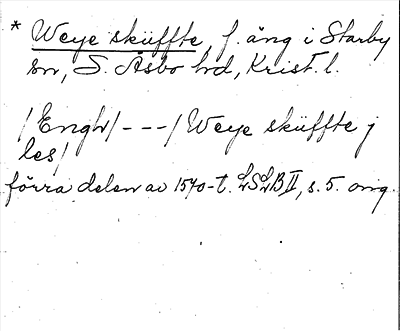 * Weye skiiffte, f. äng i Starby
sn, S. Åsbo hd, Krist. l.
/Engh/ - - - / Weye skiiffte j
les/
förra delen av 1540-t. LSLB II, s. 5. orig.